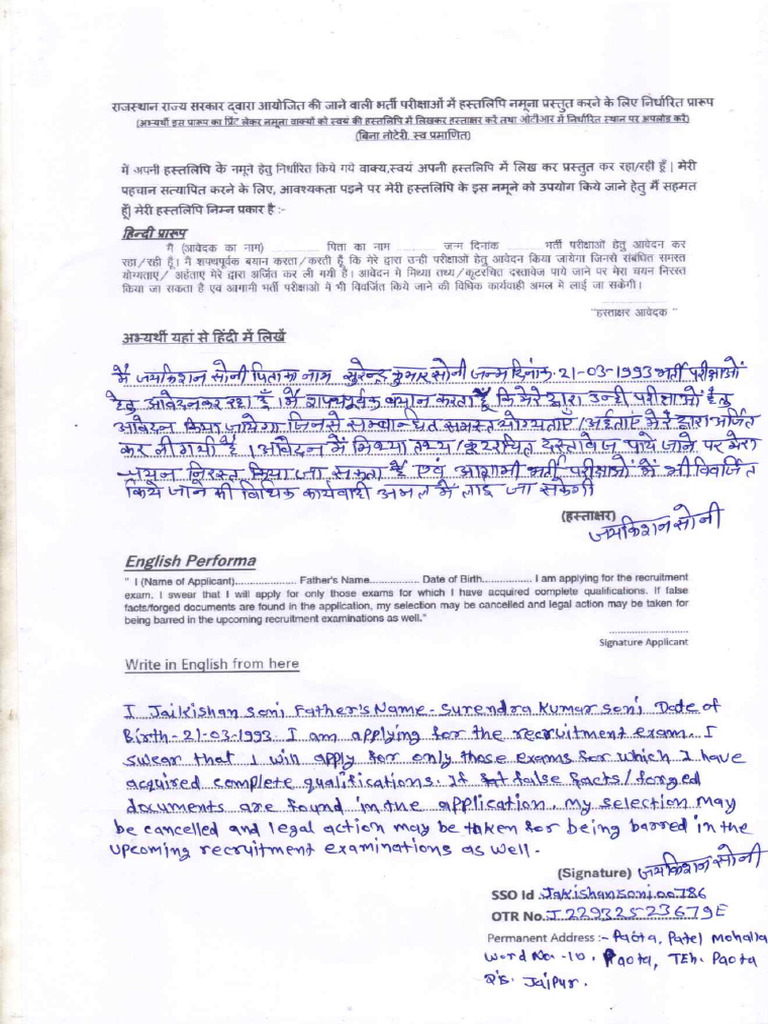 राजस्थान राज्य सरकार द्वारा आयोजित की जाने वाली भर्ती परीक्षाओं में हस्तलिपि नमूना प्रस्तुत करने के लिए निर्धारित प्रारूप
(अभ्यर्थी इस प्रारूप का प्रिंट लेकर नमूना वाक्यों को स्वयं की हस्तलिपि में लिखकर हस्ताक्षर करें तथा ओटीआर में निर्धारित स्थान पर अपलोड करें)
(बिना नोटेरी, स्व प्रमाणित)
में अपनी हस्तलिपि के नमूने हेतु निर्धारित किये गये वाक्य,स्वयं अपनी हस्तलिपि में लिख कर प्रस्तुत कर रहा/रही हूँ | मेरी
पहचान सत्यापित करने के लिए, आवश्यकता पड़ने पर मेरी हस्तलिपि के इस नमूने को उपयोग किये जाने हेतु मैं सहमत
हूँ| मेरी हस्तलिपि निम्न प्रकार है :-
हिन्दी प्रारूप
मै (आवेदक का नाम) .................. पिता का नाम .............. जन्म दिनांक .............. भर्ती परीक्षाओं हेतु आवेदन कर
रहा/रही हूँ। मै शपथपूर्वक बयान करता/करती हूँ कि मेरे द्वारा उन्ही परीक्षाओं हेतु आवेदन किया जायेगा जिनसे संबंधित समस्त
योग्यताए/ अर्हताए मेरे द्वारा अर्जित कर ली गयी है। आवेदन मे मिथ्या तथ्य/कूटरचित दस्तावेज पाये जाने पर मेरा चयन निरस्त
किया जा सकता है एव आगामी भर्ती परीक्षाओं मे भी विवर्जित किये जाने की विधिक कार्यवाही अमल मे लाई जा सकेगी।
..................
"हस्ताक्षर आवेदक "
अभ्यर्थी यहां से हिंदी में लिखें
मैं जयकिशन सोनी पिता का नाम सुरेन्द्र कुमार सोनी जन्म दिनांक 21-03-1993 भर्ती परीक्षाओं
हेतु आवेदन कर रहा हूँ। मैं शपथपूर्वक बयान करता हूँ कि मेरे द्वारा उन्ही परीक्षाओं हेतु
आवेदन किया जायेगा जिनसे सम्बन्धित समस्त योग्यताएँ/अर्हताएं मेरे द्वारा अर्जित
कर ली गयी है । आवेदन में मिथ्या तथ्य/कूटरचित दस्तावेज पाये जाने पर मेरा
चयन निरस्त किया जा सकता है एवं आगामी भर्ती परीक्षाओं में भी विवर्जित
किये जाने की विधिक कार्यवाही अमल में लाइ जा सकेगी
(हस्ताक्षर) जयकिशन सोनी
English Performa
" I (Name of Applicant)..................... Father's Name................. Date of Birth................. I am applying for the recruitment
exam. I swear that I will apply for only those exams for which I have acquired complete qualifications. If false
facts/forged documents are found in the application, my selection may be cancelled and legal action may be taken for
being barred in the upcoming recruitment examinations as well."
..........................
Signature Applicant
Write in English from here
I Jaikishan Soni, Father's Name - Surendra Kumar Soni, Date of
Birth - 21-03-1993 I am applying for the recruitment exam. I
swear that I will apply for only those exams for which I have
acquired complete qualifications. If false facts/forged
documents are found in the application, my selection may
be cancelled and legal action may be taken for being barred in the
upcoming recruitment examinations as well.
(Signature) जयकिशन सोनी
SSO Id Jakishansoni00786
OTR No. J22932523679E
Permanent Address :- Paota, Patel Mohalla
Word No.-10, Paota, TEh. Paota
Dis. Jaipur.